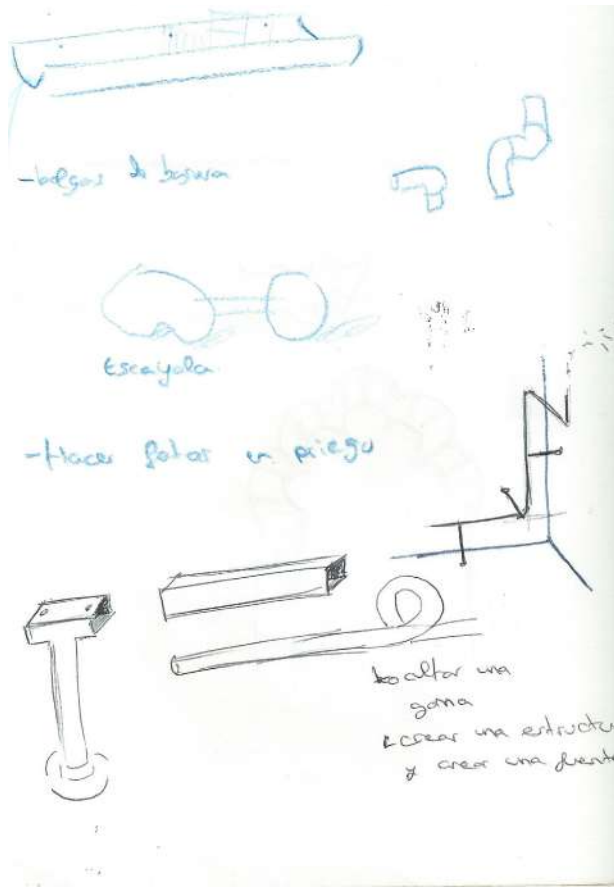 -bolsas de basura
Escayola
-Hacer flotar un pliego
ocultar una
goma
crear una estructu
y crear una fuente